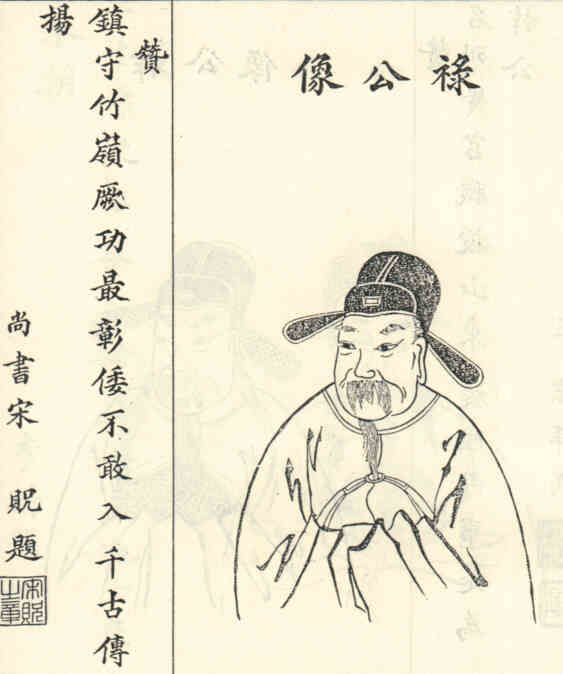 祿公像
贊
鎮守竹嶺厥功最彰倭不敢入千古傳
揚
尚書宋 貺題
宋貺之章